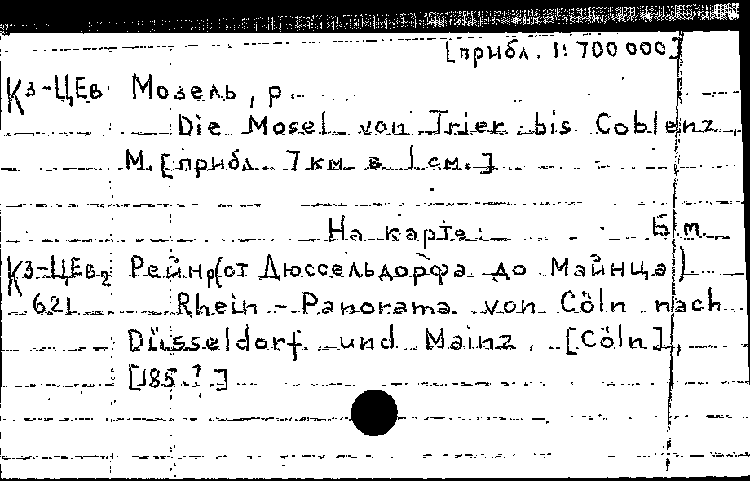 [прибл. 1:700 000]
К3-ЦЕв Мозель, р.
Die Mosel von Trier bis Coblenz.
М. [прибл. 7 км в 1 см.]
На карте: Б.m.
К3-ЦЕв2 Рейн р(от Дюссельдорфа до Майнца)
621 Rhein-Panorama von Cöln nach
Düsseldorf und Mainz. [Cöln],
[185.?]